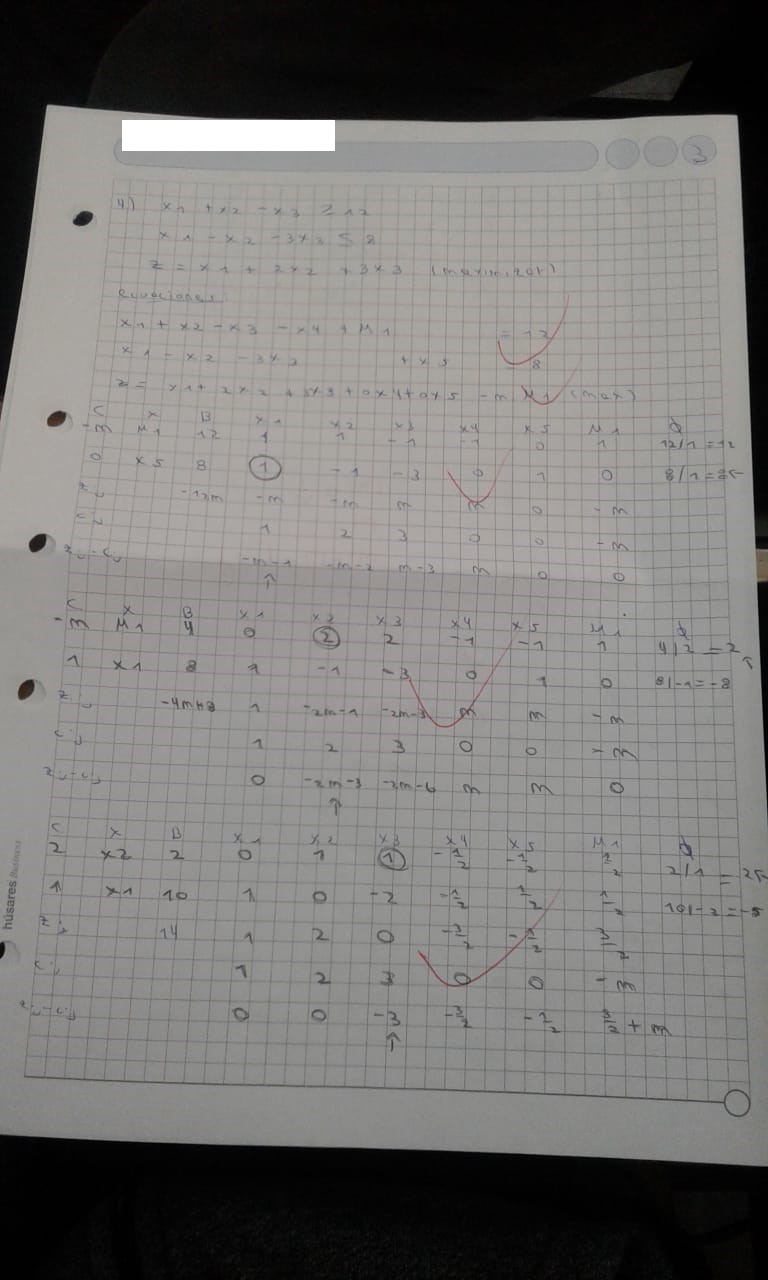 3
4) x1 + x2 - x3 ≥ 12
x1 - x2 - 3x3 ≤ 8
z = x1 + 2x2 + 3x3 (maximizar)
ecuaciones:
x1 + x2 - x3 - x4 + M1 = 12
x1 - x2 - 3x3 + x5 8
z = x1 + 2x2 + 3x3 + 0x4 + 0x5 - m M1 (max)
C X B x1 x2 x3 x4 x5 M1 ϕ
-m M1 12 1 1 -1 -1 0 1 12/1 = 12
0 x5 8 1 -1 -3 0 1 0 8/1 = 8
zj -12m -m -m m m 0 -m
cj 1 2 3 0 0 -m
zj-cj -m-1 -m-2 m-3 m 0 0
C X B x1 x2 x3 x4 x5 M1 ϕ
-m M1 4 0 2 2 -1 -1 1 4/2 = 2
1 x1 8 1 -1 -3 0 1 0 8/-1 = -8
zj -4m+8 1 -2m-1 -2m-3 m m -m
cj 1 2 3 0 0 -m
zj-cj 0 -2m-3 -2m-6 m m 0
C X B x1 x2 x3 x4 x5 M1 ϕ
2 x2 2 0 1 1 -1/2 -1/2 1/2 2/1 = 2
1 x1 10 1 0 -2 -1/2 1/2 1/2 10/-2 = -5
zj 14 1 2 0 -3/2 -1/2 3/2
cj 1 2 3 0 0 -m
zj-cj 0 0 -3 -3/2 -1/2 3/2 + m
húsares Business